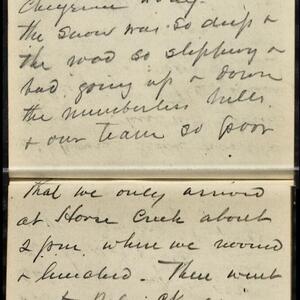 Cheyenne
the snow was so deep &
the road so slippery &
bad going up & down
the numberless hills.
& our team so poor
that we only arrived
at Horse Creek about
2 pm. when we nooned
& lunched. Then went